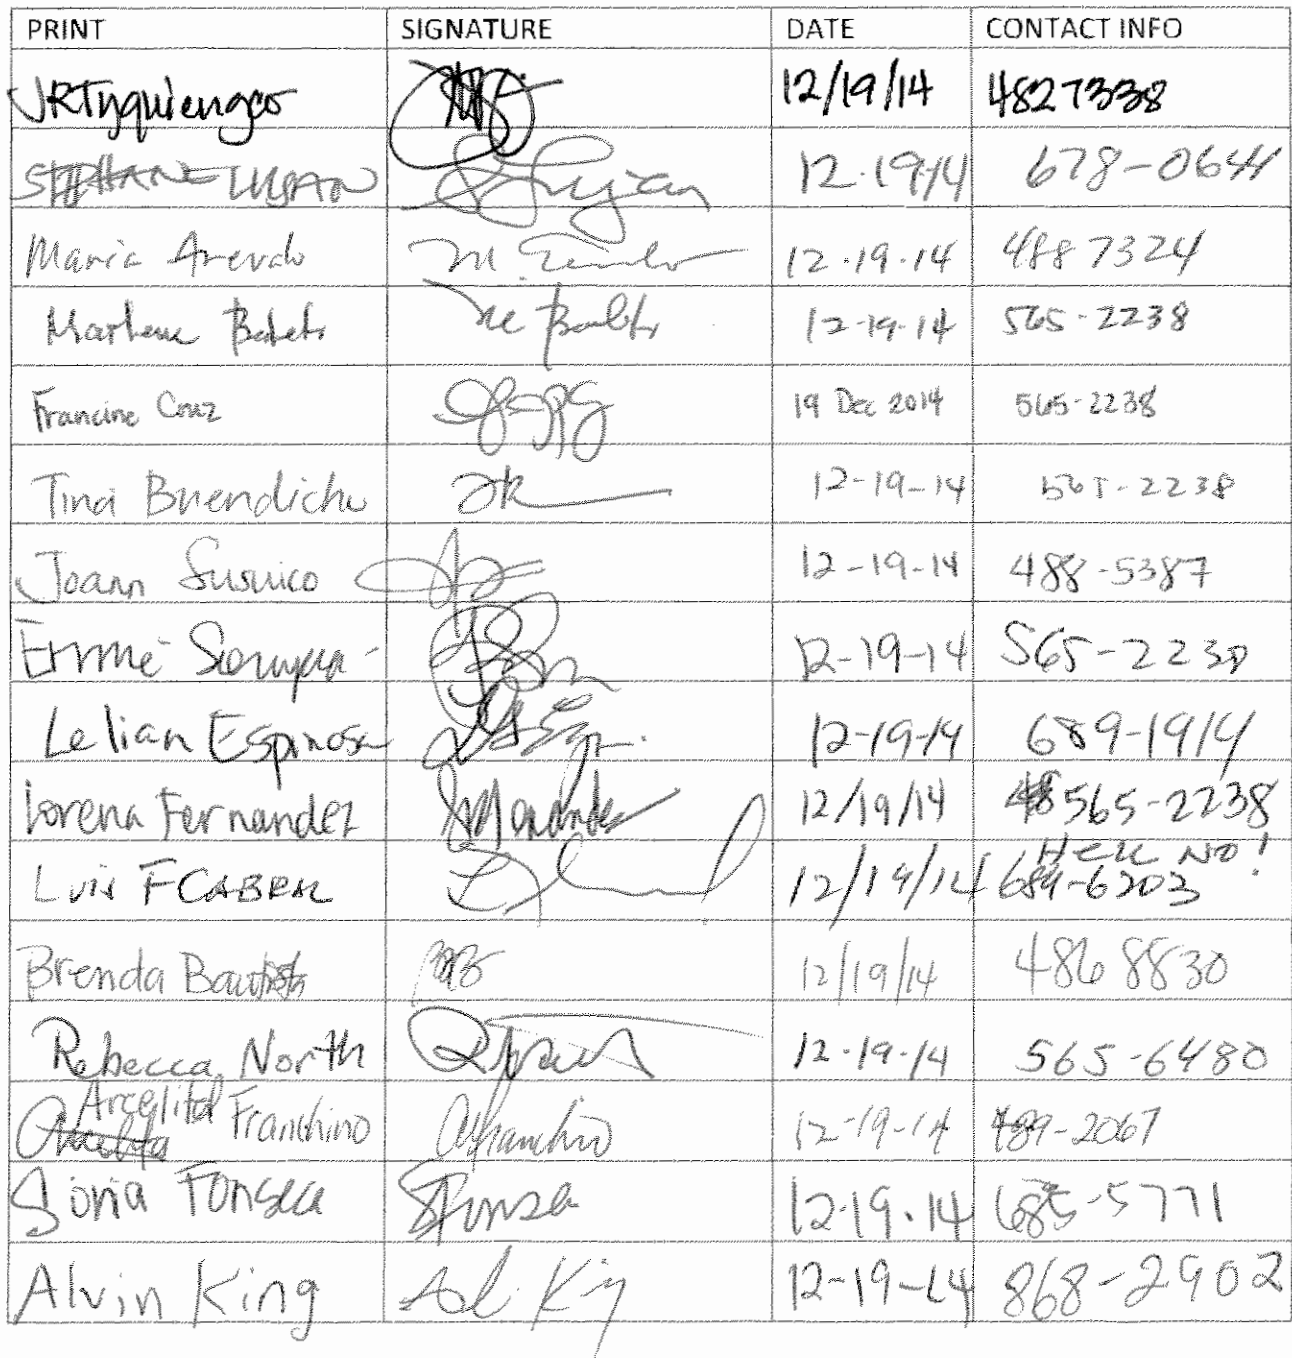 PRINT SIGNATURE DATE CONTACT INFO
JRTyquiengco 12/19/14 4827338
LUJAN 12.19.14 678-0644
Maria Arevalo 12.19.14 488 7324
Marlene 12-19-14 565-2238
Francine Cruz 19 Dec 2014 565-2238
Tina Buendicho 12-19-14 565-2238
Joann Susuico 12-19-14 488-5387
12-19-14 565-2238
Lelian Espinosa 12-19-14 689-1914
Lorena Fernandez 12/19/14 565-2238
HECK NO!
Luis F CABRAL 12/19/14 689-6203
Brenda Bautista 12/19/14 4868830
Rebecca North 12-19-14 565-6480
Arcelita Franchino AFranchino 12-19-14 489-2067
Sonia Fonseca SFonseca 12-19.14 685-5771
Alvin King Al. King 12-19-14 868-2902